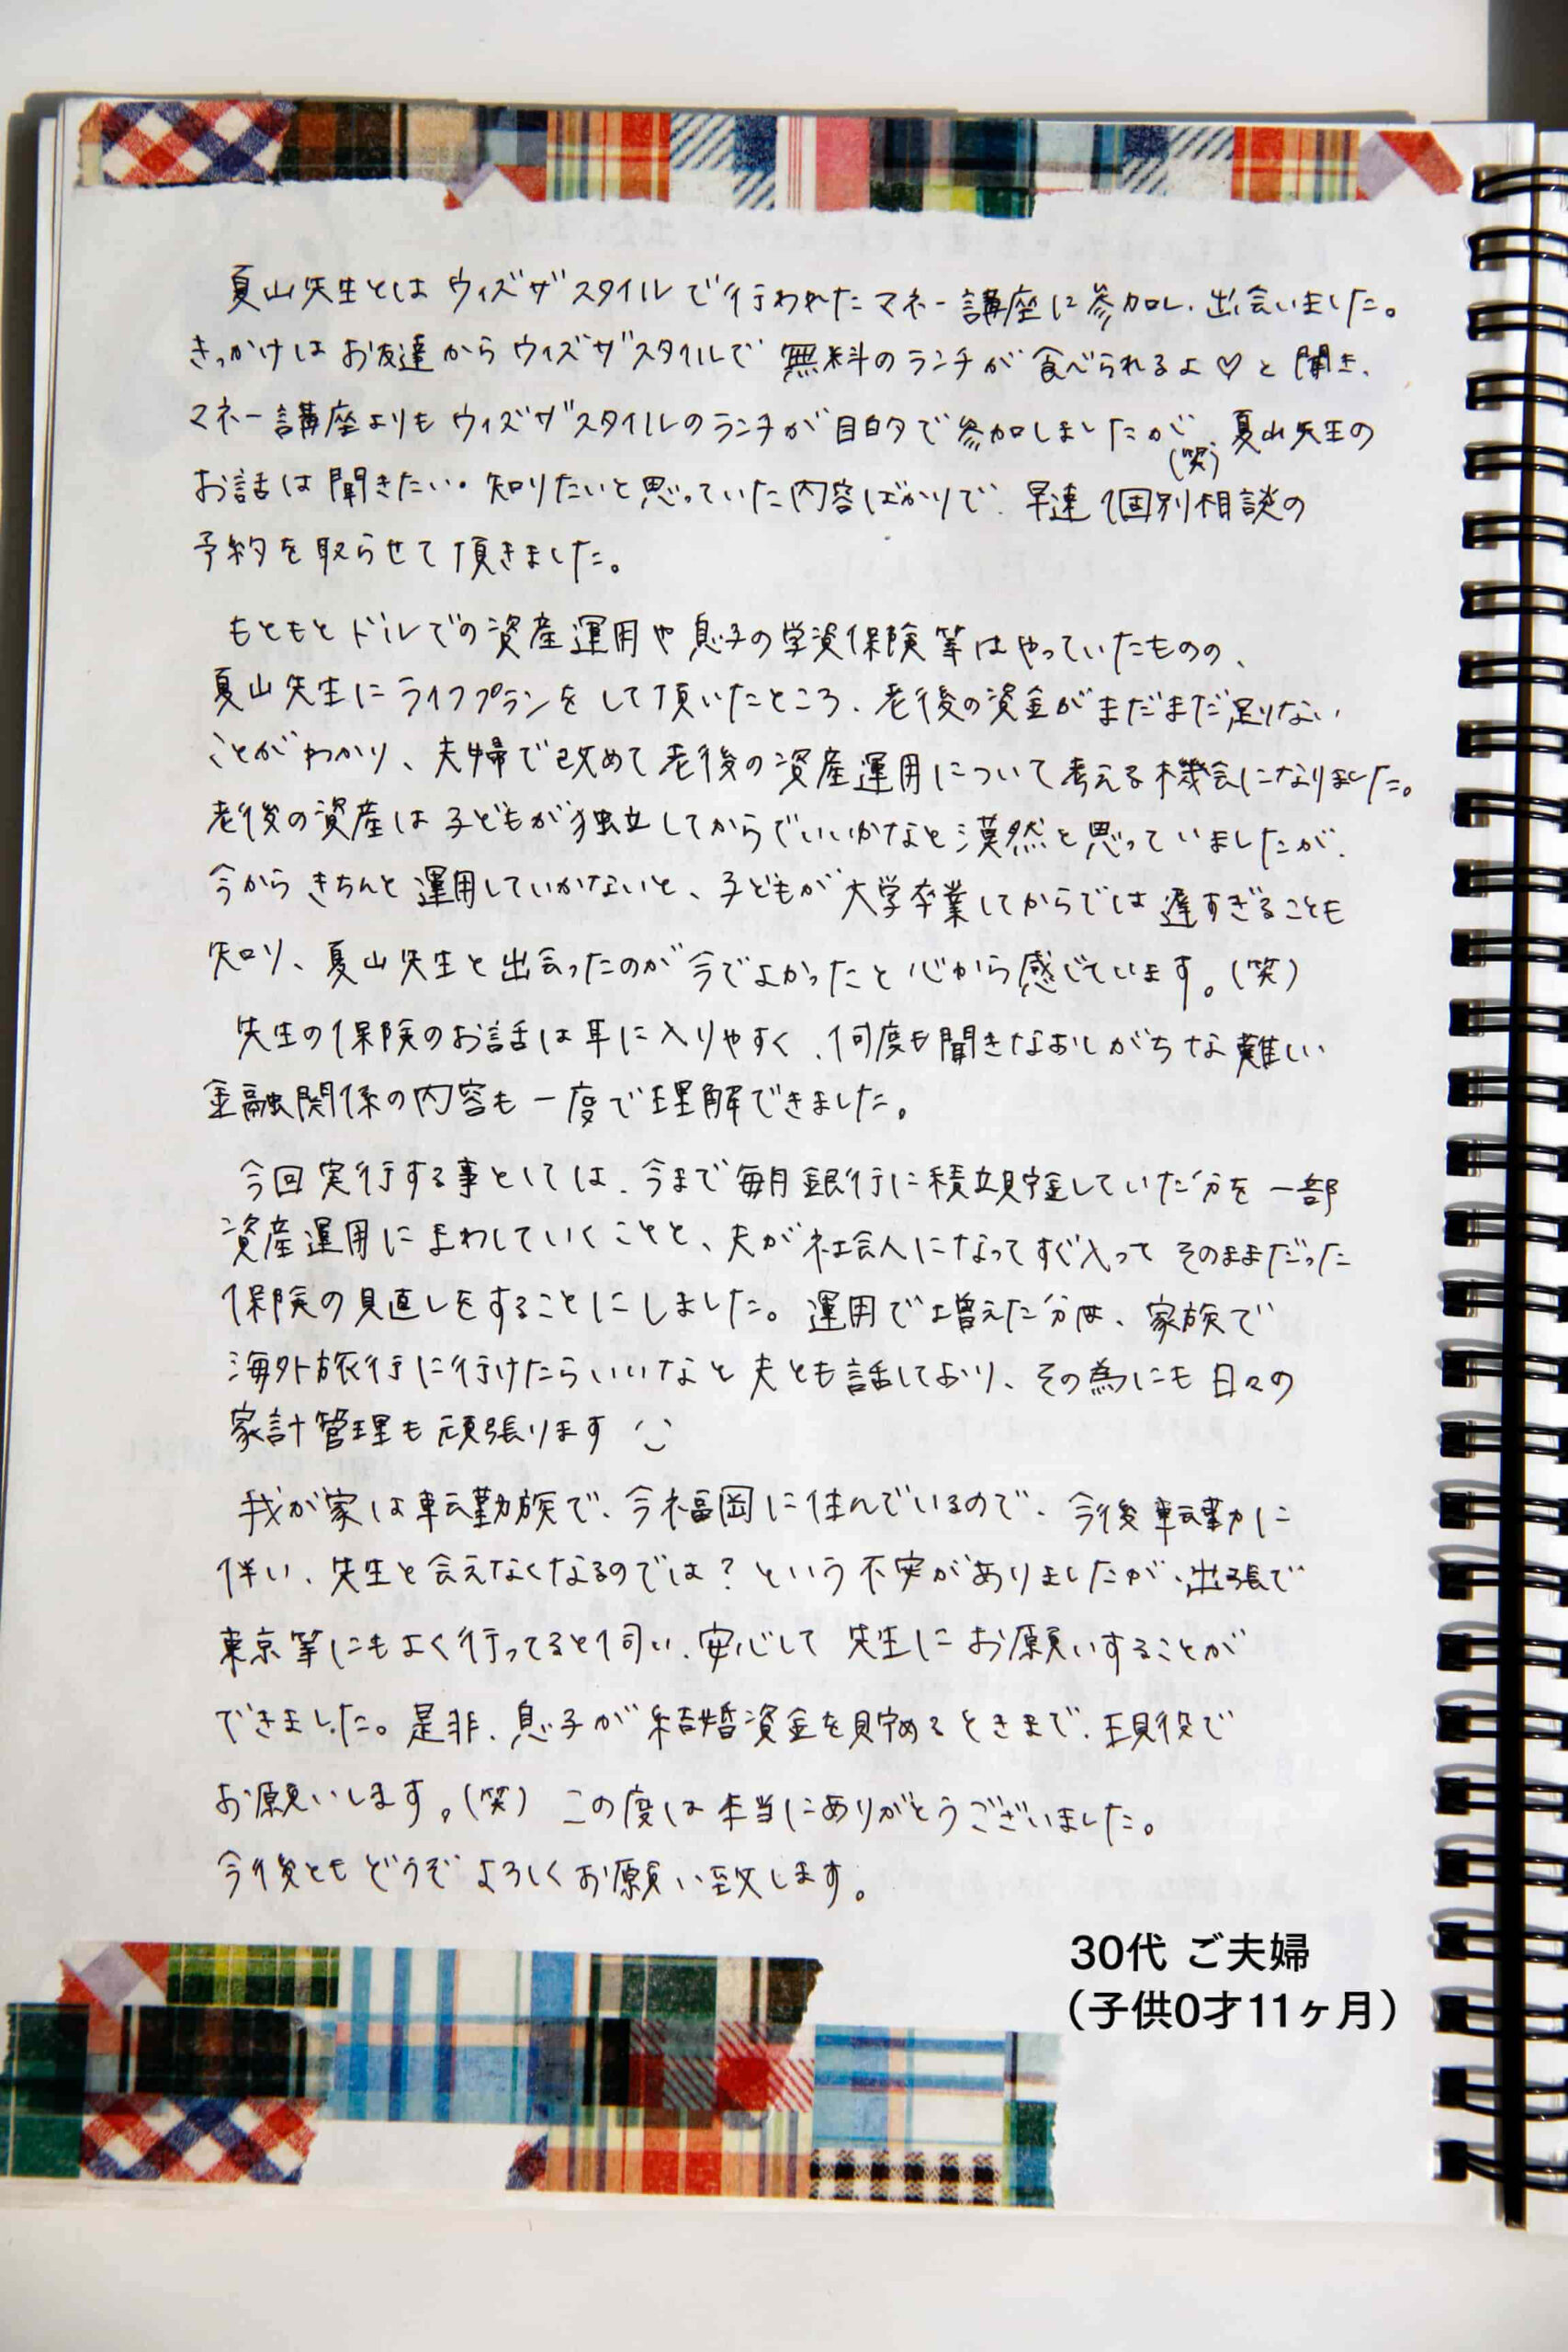 夏山先生とはウィズザスタイルで行われたマネー講座に参加し、出会いました。
きっかけはお友達からウィズザスタイルで無料のランチが食べられるよ♡と聞き、
マネー講座よりもウィズザスタイルのランチが目的で参加しましたが(笑)、夏山先生の
お話は聞きたい・知りたいと思っていた内容ばかりで、早速個別相談の
予約を取らせて頂きました。
もともとドルでの資産運用や息子の学資保険等はやっていたものの、
夏山先生にライフプランをして頂いたところ、老後の資金がまだまだ足りない
ことがわかり、夫婦で改めて老後の資産運用について考える機会になりました。
老後の資産は子どもが独立してからでいいかなと漠然と思っていましたが、
今からきちんと運用していかないと、子どもが大学卒業してからでは遅すぎることも
知り、夏山先生と出会ったのが今でよかったと心から感じています。(笑)
先生の保険のお話は耳に入りやすく、何度も聞きなおしがちな難しい
金融関係の内容も一度で理解できました。
今回実行する事としては、今まで毎月銀行に積立貯金していた分を一部
資産運用にまわしていくことと、夫が社会人になってすぐ入ってそのままだった
保険の見直しをすることにしました。運用で増えた分は、家族で
海外旅行に行けたらいいなと夫とも話しており、その為にも日々の
家計管理も頑張ります
我が家は転勤族で、今福岡に住んでいるので、今後転勤に
伴い、先生と会えなくなるのでは?という不安がありましたが、出張で
東京等にもよく行ってると伺い、安心して先生にお願いすることが
できました。是非、息子が結婚資金を貯めるときまで、現役で
お願いします。(笑) この度は本当にありがとうございました。
今後ともどうぞよろしくお願い致します。
30代 ご夫婦
(子供0才11ヶ月)